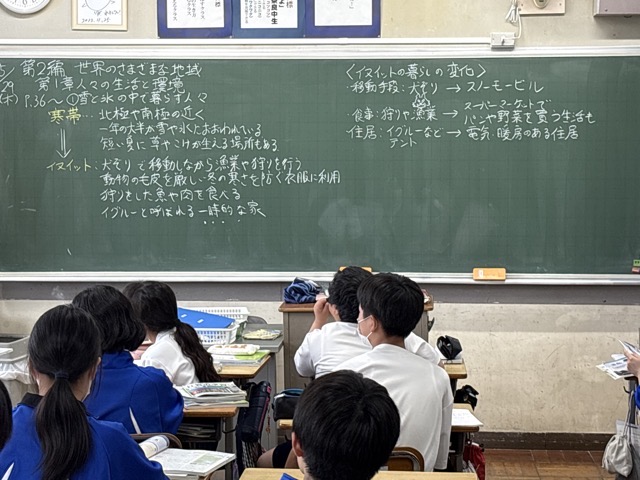 第2編 世界のさまざまな地域
29 第1章人々の生活と環境
(木) P.36〜 ①雪と氷の中で暮らす人々
寒帯…北極や南極の近く
一年の大半が雪や氷におおわれている
短い夏に草やこけが生える場所もある
イヌイット:犬ぞりで移動しながら漁業や狩りを行う
動物の毛皮を厳しい冬の寒さを防ぐ衣服に利用
狩りをした魚や肉を食べる
イグルーと呼ばれる一時的な家
<イヌイットの暮らしの変化>
・移動手段:犬ぞり→スノーモービル
・食事:狩りや漁業→スーパーマーケットでパンや野菜を買う生活も
住居:イグルーなど→電気・暖房のある住居
アント